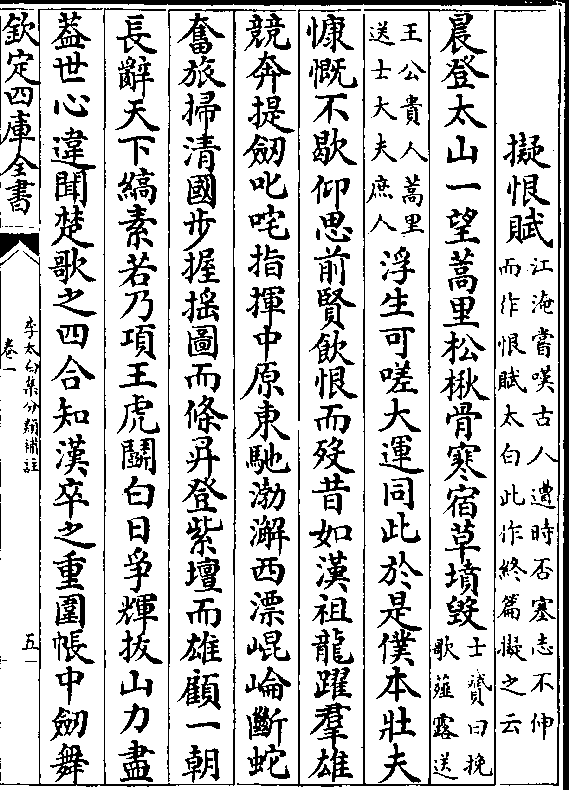 擬恨賦江淹嘗嘆古人遭時否塞志不伸
而作恨賦太白此作終篇擬之云
晨登太山一望蒿里松楸骨寒宿草墳毀士贇曰挽
歌薤露送
王公貴人蒿里
送士大夫庶人浮生可嗟大運同此於是僕本壯夫
慷慨不歇仰思前賢飲恨而歿昔如漢祖龍躍羣雄
競奔提劒叱咤指揮中原東馳渤澥西漂崐崘斷蛇
奮旅掃清國步握搖圖而條昇登紫壇而雄顧一朝
長辭天下縞素若乃項王虎鬭白日爭輝拔山力盡
蓋世心違聞楚歌之四合知漢卒之重圍帳中劒舞
欽定四庫全書
李太白集分類補註
卷一
五